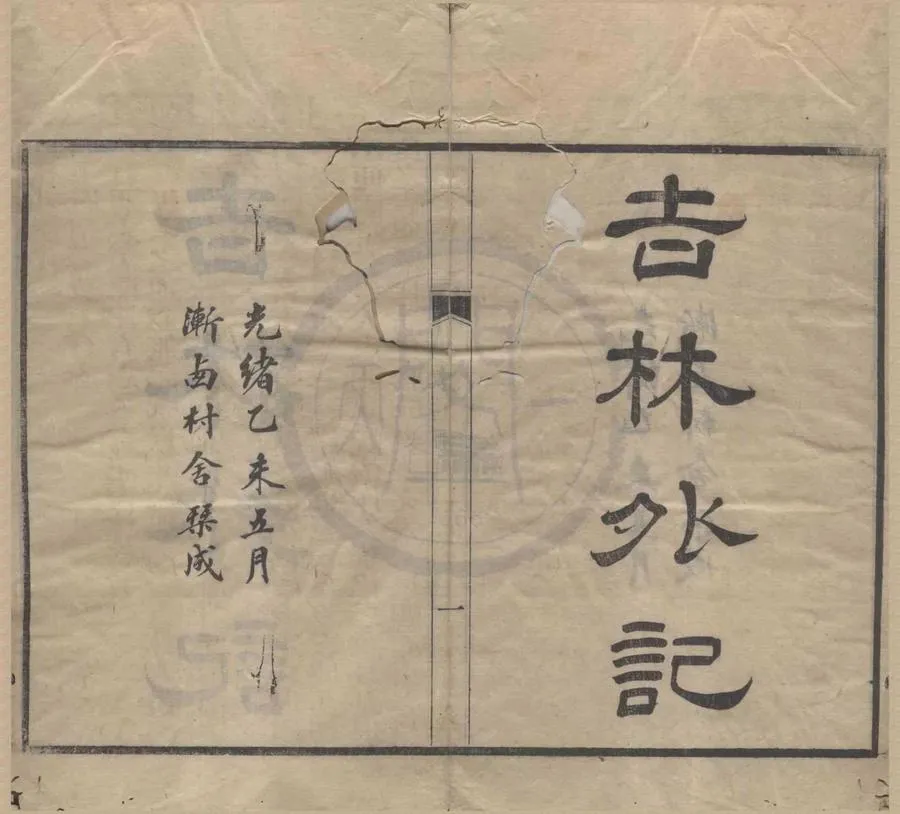 吉林外記
一
光緒乙未五月
漸卥村舍栞成